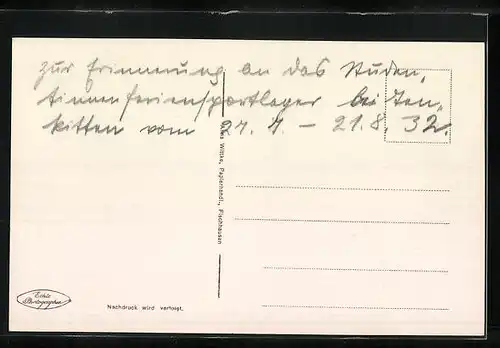 zur Erinnerung an das Studen,
tinnenferiensportlager bei Ten,
kitten vom 27. 7. – 21.8. 32.
Wittke, Papierhandl., Fischhausen
Echte
Photographie
Nachdruck wird verfolgt.